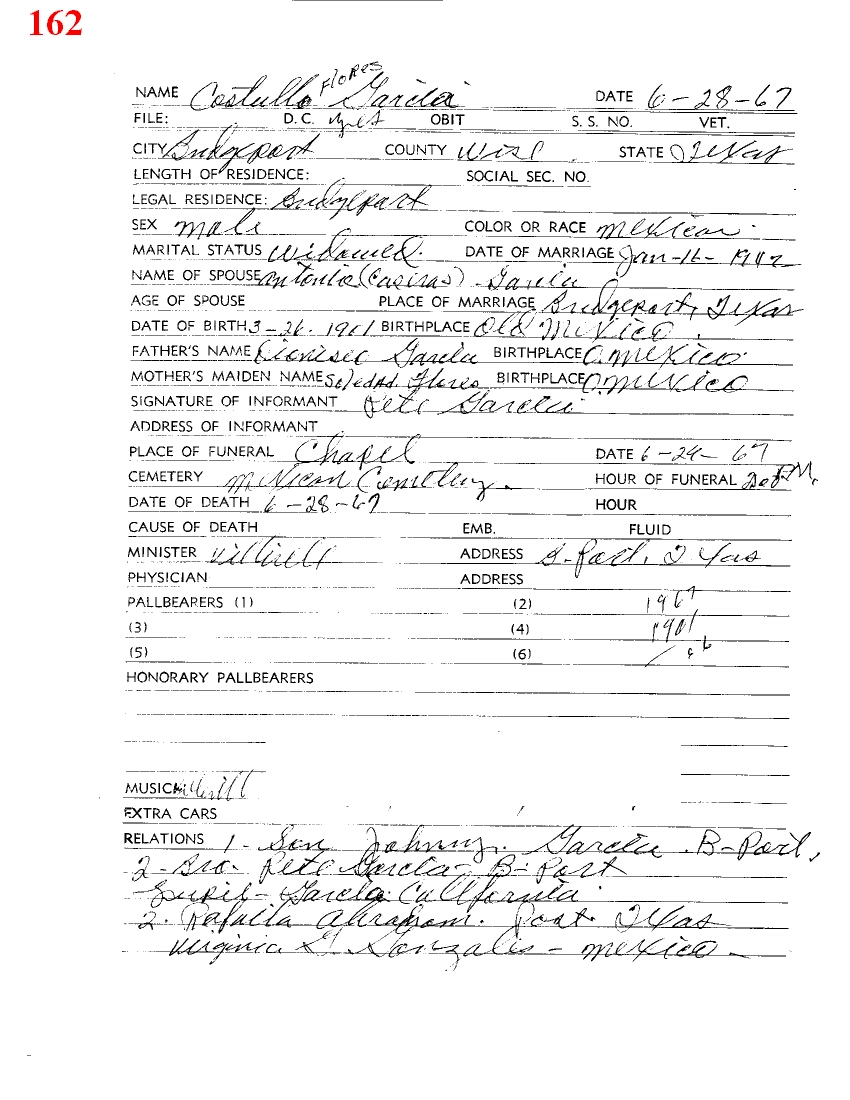 162
FLORES
NAME Costullo Garcia DATE 6-28-67
FILE: D.C. yes OBIT S. S. NO. VET.
CITY Bridgeport COUNTY Wise STATE Texas
LENGTH OF RESIDENCE: SOCIAL SEC. NO.
LEGAL RESIDENCE: Bridgeport
SEX male COLOR OR RACE mexican
MARITAL STATUS Widowed. DATE OF MARRIAGE Jan-16-
NAME OF SPOUSE Antonio (Casiras) Garcia
AGE OF SPOUSE PLACE OF MARRIAGE Bridgeport, Texas
DATE OF BIRTH 3-26-1901 BIRTHPLACE Old Mexico
FATHER'S NAME Garcia BIRTHPLACE O. Mexico
MOTHER'S MAIDEN NAME Soledad. Flores BIRTHPLACE O. Mexico
SIGNATURE OF INFORMANT Pete Garcia
ADDRESS OF INFORMANT
PLACE OF FUNERAL Chapel DATE 6-29-67
CEMETERY Mexican Cemetery. HOUR OF FUNERAL
DATE OF DEATH 6-28-67 HOUR
CAUSE OF DEATH EMB. FLUID
MINISTER ADDRESS B-Port, Texas
PHYSICIAN ADDRESS
PALLBEARERS (1) (2) 1967
(3) (4) 1901
(5) (6)
HONORARY PALLBEARERS
MUSIC
EXTRA CARS
RELATIONS 1- Son Johnny. Garcia. B-Port,
2-Bro. Pete Garcia- B-Port
Garcia California
2. Rafaila Abraham. Post. Texas
Virginia G. Gonzales - Mexico